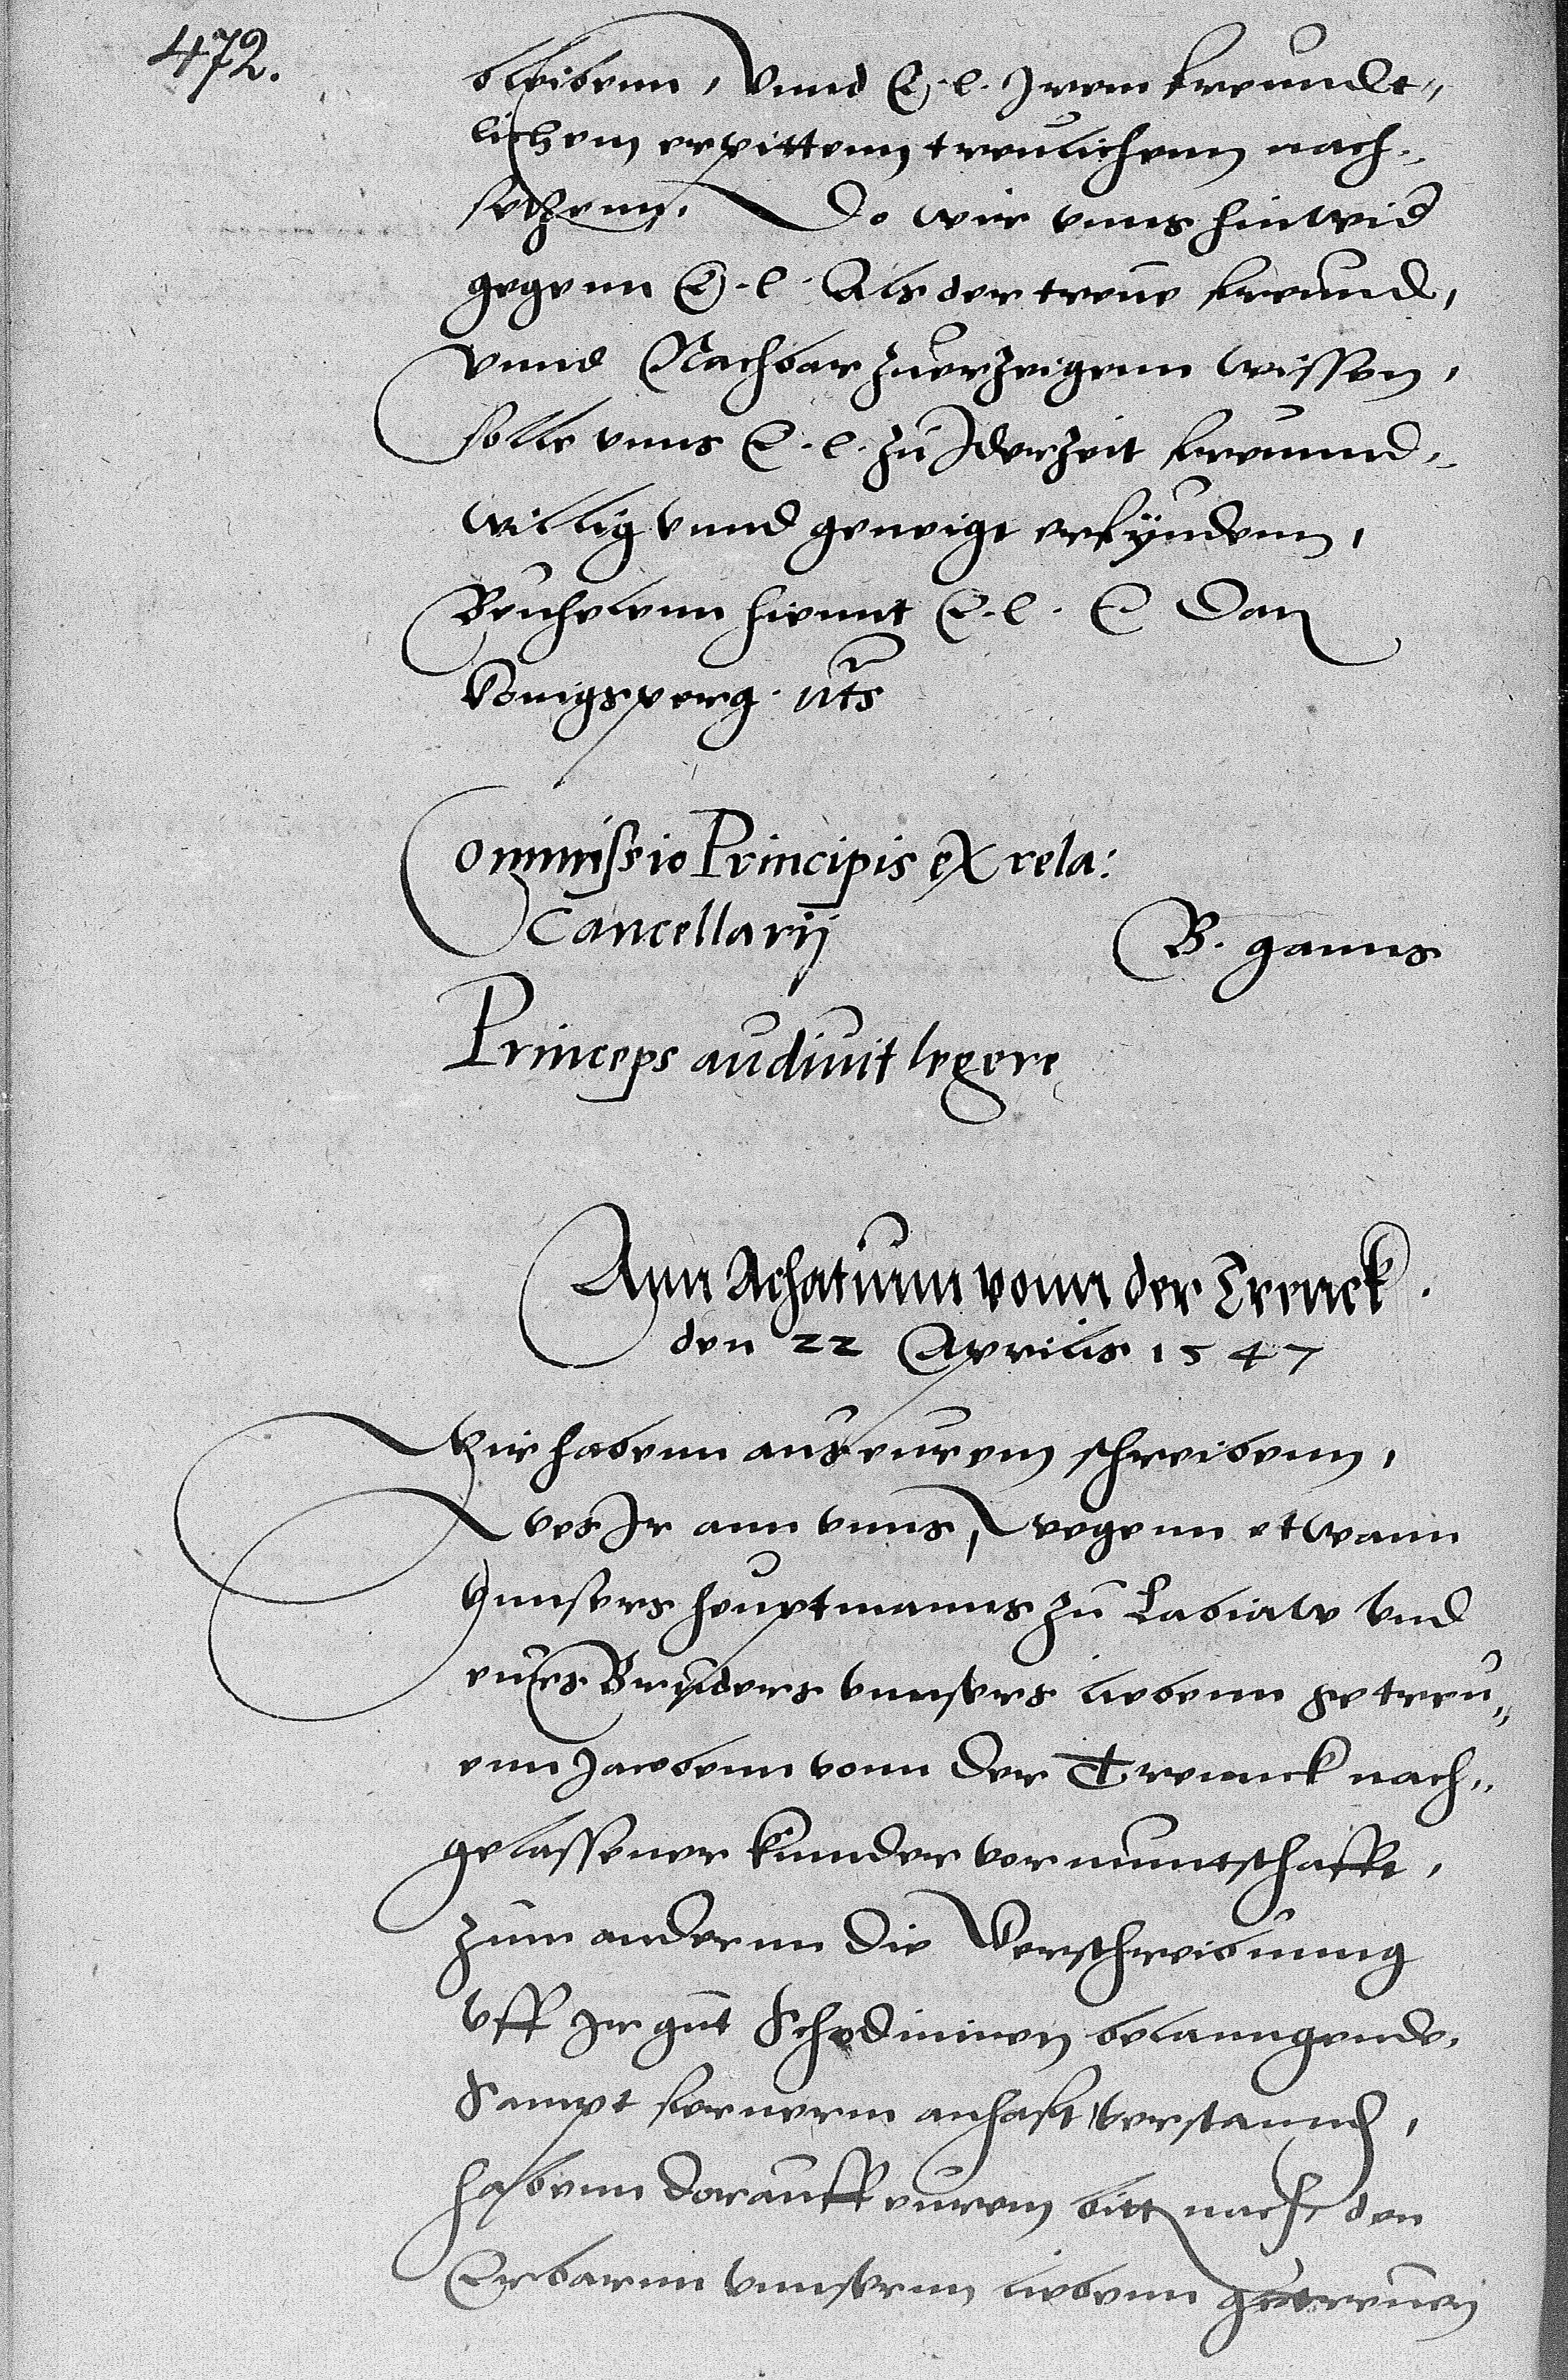 472.
bleibenn, Vnnd E. l. Irem freundt„
lichem erpittenn treulichenn nach„
setzenn. Do wir vnns hinwid
gegenn E. l. Als der treue freund,
vnnd Nachbar zuerzeigenn wissen,
solle vnns E. l. zu Jderzeit freunnd„
willig vnnd geneigt erfyndenn,
Beuhelenn hiemit E. l. E Dat
Konigsperg. uts
Commissio Principis ex rela:
Cancellarij
B. ganns
Princeps audiuit legere
Ann Achatium vonn der Trenck.
den 22 Aprilis 1547
Wir habenn aus eurem schreibenn,
wes Ir ann vnns, wegenn etwann
vnnsers heuptmanns zu Labiaw vnd
eurs Bruders vnnsers liebenn getreu„
enn Jacobenn vonn der Trennck nach„
gelassener kinnder vormuntschafft,
zum andernn die Verschreibunng
vff Ir gut Schedminen belanngende,
Sampt fernerm anhafft verstannd,
habenn darauff eurem bitt nach, den
Erbarnn vnnsernn liebenn getreuen